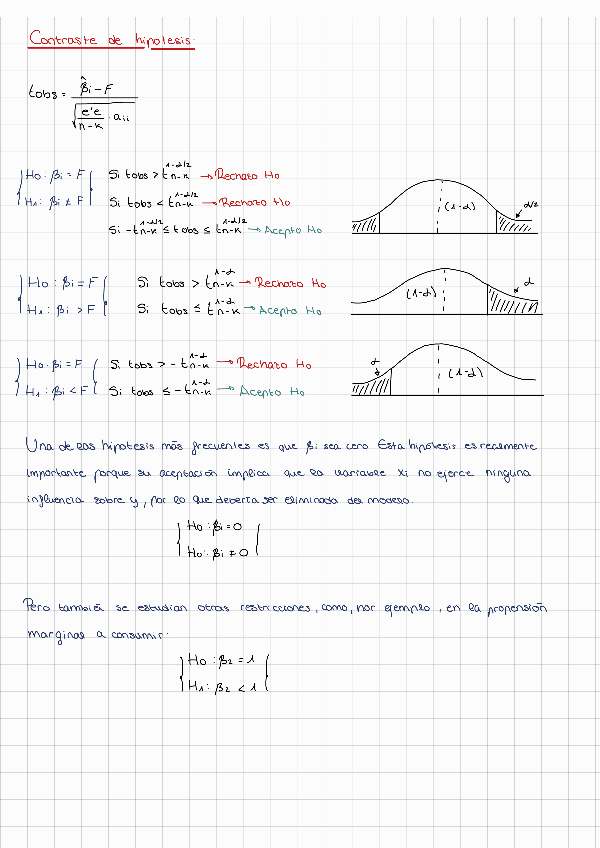 Contraste de hipotesis.
tobs = (β̂i - F) / √(e'e / n-k · aii)
H0: βi = F Si tobs > t n-k 1-α/2 → Rechazo H0
H1: βi ≠ F Si tobs < t n-k 1-α/2 → Rechazo H0
Si - t n-k 1-α/2 ≤ tobs ≤ t n-k 1-α/2 → Acepto H0
(1-α) α/2
H0: βi = F Si tobs > t n-k 1-α → Rechazo H0
H1: βi > F Si tobs ≤ t n-k 1-α → Acepto H0
(1-α) α
H0: βi = F Si tobs > - t n-k 1-α → Rechazo H0
H1: βi < F Si tobs ≤ - t n-k 1-α → Acepto H0
α (1-α)
Una de las hipotesis más frecuentes es que βi sea cero Esta hipótesis es realmente
importante porque su aceptación implica que la variable Xi no ejerce ninguna
influencia sobre y, por lo que debería ser eliminada del modelo.
H0: βi = 0
H0: βi ≠ 0
Pero también se estudian otras restricciones, como, por ejemplo, en la propensión
marginal a consumir:
H0: β2 = 1
H1: β2 < 1